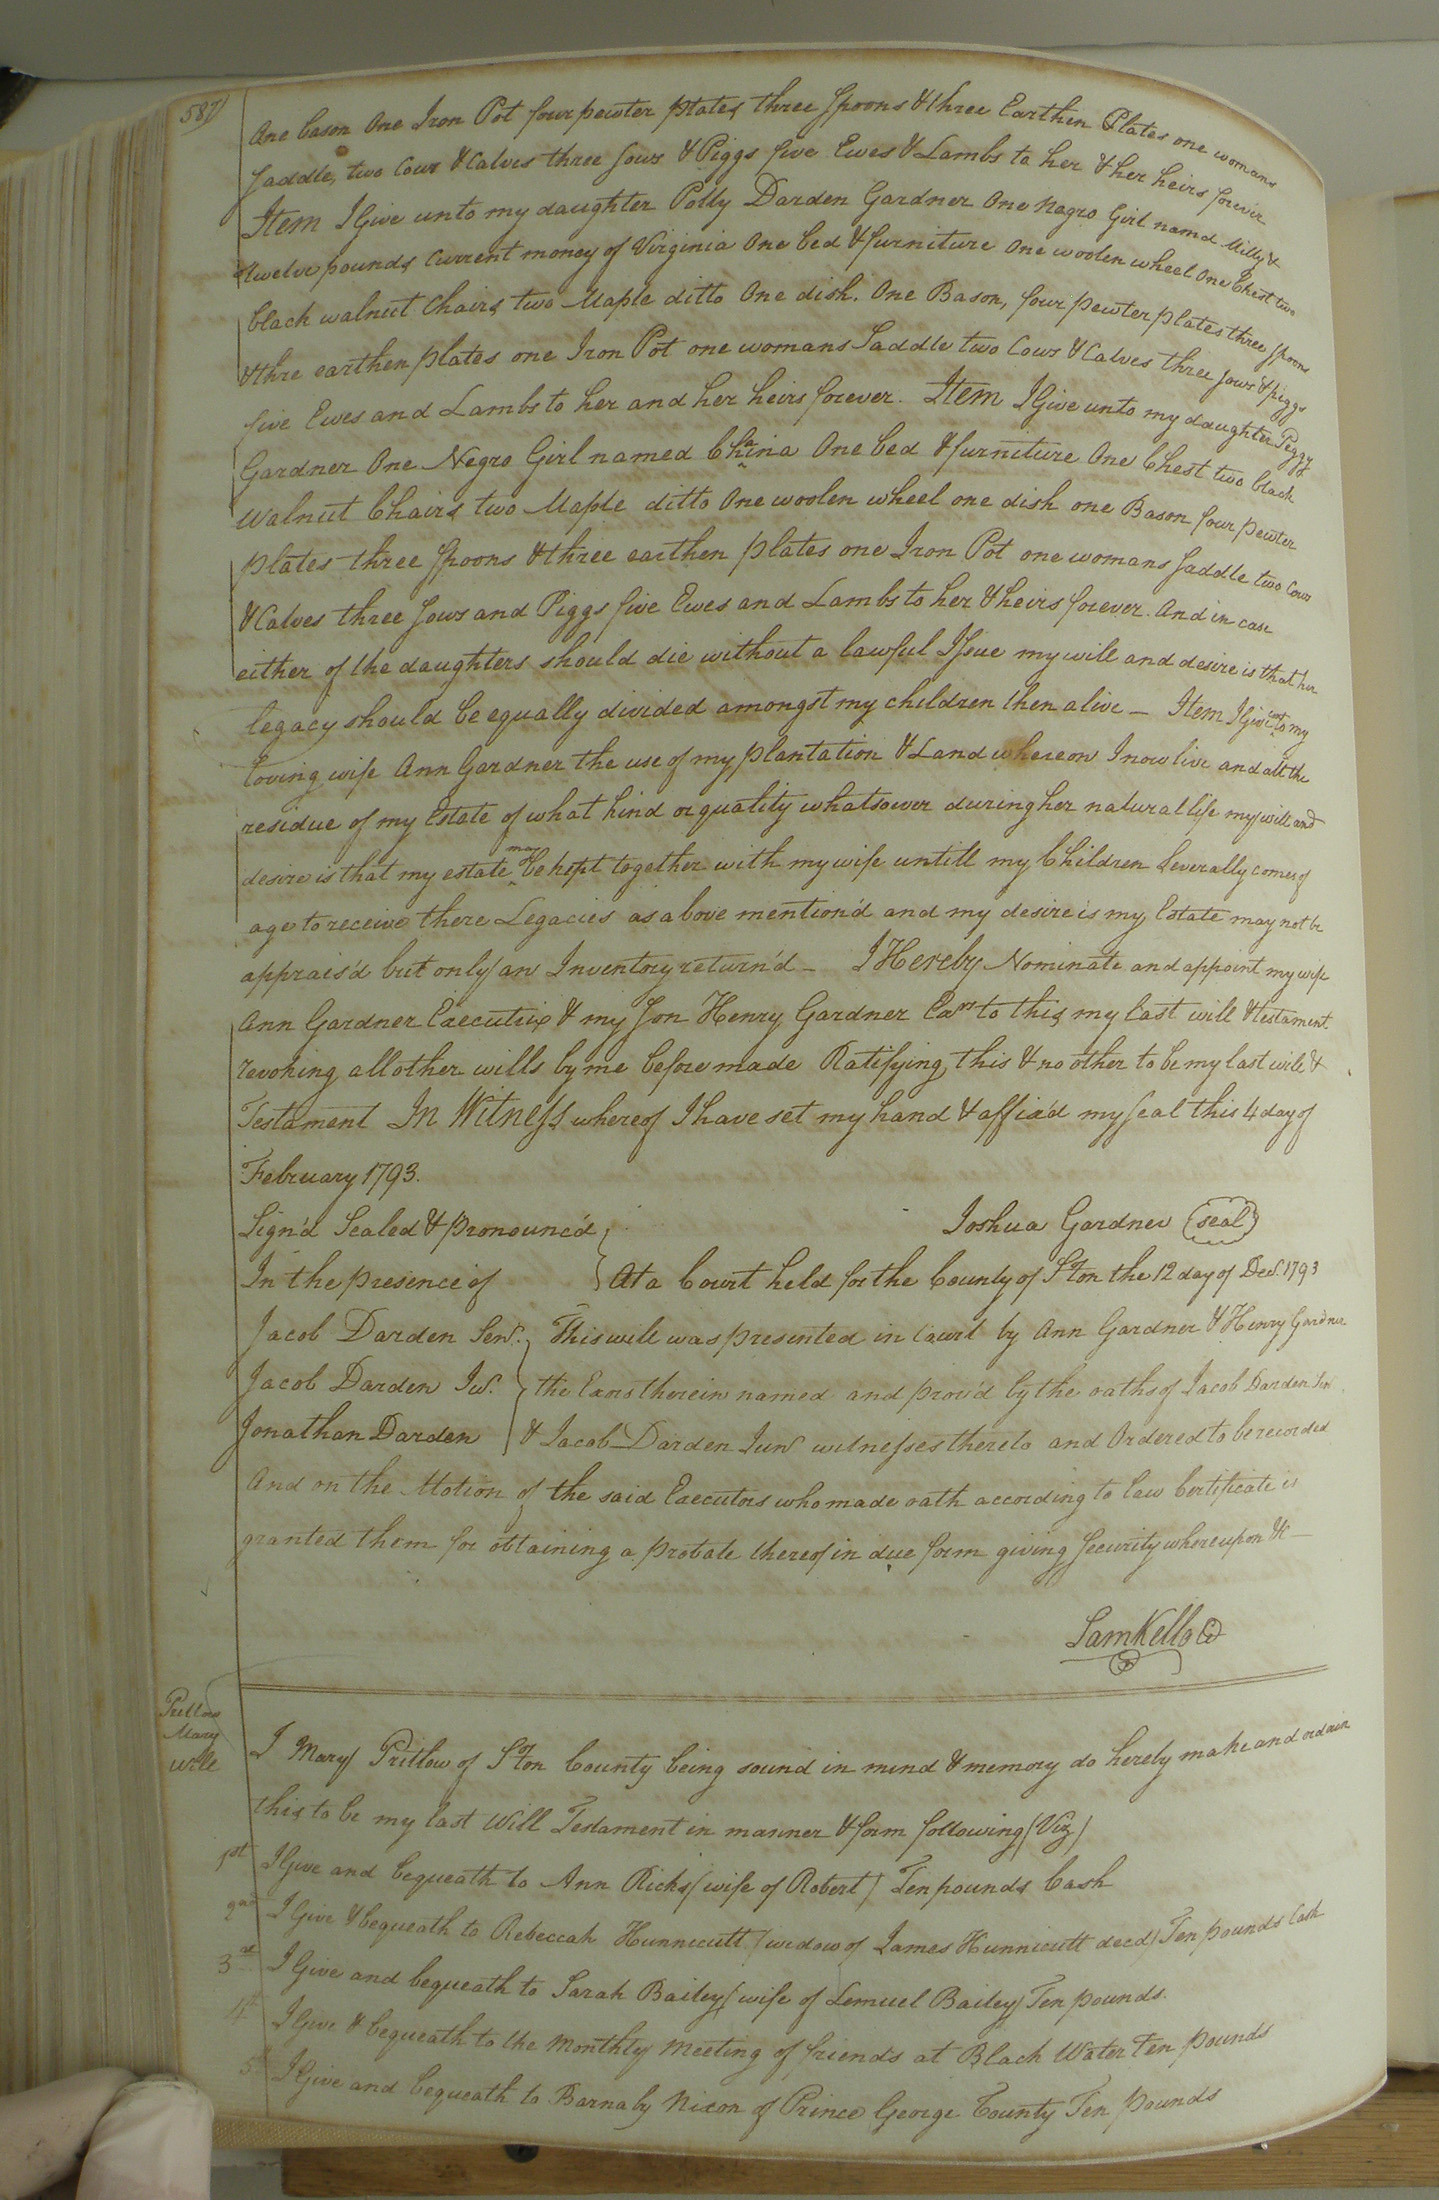 587)
One bason One Iron Pot four pewter plates three Spoons & three Earthen Plates one womans
Saddle, two Cows & Calves three Sows & Piggs five Ewes & Lambs to her & her heirs forever
Item I Give unto my daughter Polly Darden Gardner One Nagro Girl namd Milly &
twelve pounds Current money of Virginia One bed & furniture one woolen wheel One Chest two
black walnut Chairs two Maple ditto One dish. One Bason, four pewter plates three Spoons
& thre earthen plates one Iron Pot one womans Saddle two Cows & Calves three sows & piggs
five Ewes and Lambs to her and her heirs forever. Item I Give unto my daughter Peggy
Gardner One Negro Girl named Chaina One bed & furniture One Chest two black
Walnut Chairs two Maple ditto One woolen wheel one dish one Bason four pewter
plates three Spoons & three earthen plates one Iron Pot one womans Saddle two Cows
& Calves three Sows and Piggs five Ewes and Lambs to her & heirs forever. And in case
either of the daughters should die without a lawful Issue my will and desire is that her
legacy should be equally divided amongst my children then alive — Item I Give unto my
loving wife Ann Gardner the use of my plantation & Land whereon I now live and all the
residue of my Estate of what kind or quality whatsoever during her natural life my will and
desire is that my estate may be kept together with my wife untill my Children Severally comes of
age to receive there Legacies as above mention'd and my desire is my Estate may not be
apprais'd but only an Inventory return'd — I Hereby Nominate and appoint my wife
Ann Gardner Executrix & my Son Henry Gardner Exrs to this my last will & testament
revoking all other wills by me before made Ratifying this & no other to be my last will &
Testament In Witness whereof I have set my hand & affix'd my Seal this 4 day of
February 1793.
Sign'd Sealed & pronounc'd Joshua Gardner (seal)
In the presence of At a Court held for the County of S.ton the 12 day of Decr. 1793
Jacob Darden Senr. This will was presented in Court by Ann Gardner & Henry Gardner
Jacob Darden Jur. the Exors therein named and prov'd by the oaths of Jacob Darden Sen
Jonathan Darden & Jacob Darden Junr witnesses thereto and Ordered to be recorded
And on the Motion of the said Executors who made oath according to law Certificate is
granted them for obtaining a probate thereof in due form giving Security whereupon &c —
Sam Kello
Pretlow
Mary
Will
I Mary Pretlow of S.ton County being sound in mind & memory do hereby make and ordain
this to be my last Will Testament in manner & form following (Viz)
1st I Give and bequeath to Ann Ricks (wife of Robert) Ten pounds Cash
2nd I Give & bequeath to Rebeccah Hunnicutt (widow of James Hunnicutt decd) Ten pounds Cash
3rd I Give and bequeath to Sarah Bailey (wife of Lemuel Bailey) Ten pounds.
4th I Give & bequeath to the Monthly Meeting of friends at Black Water Ten pounds
5th I Give and bequeath to Barnaby Nixon of Prince George County Ten pounds